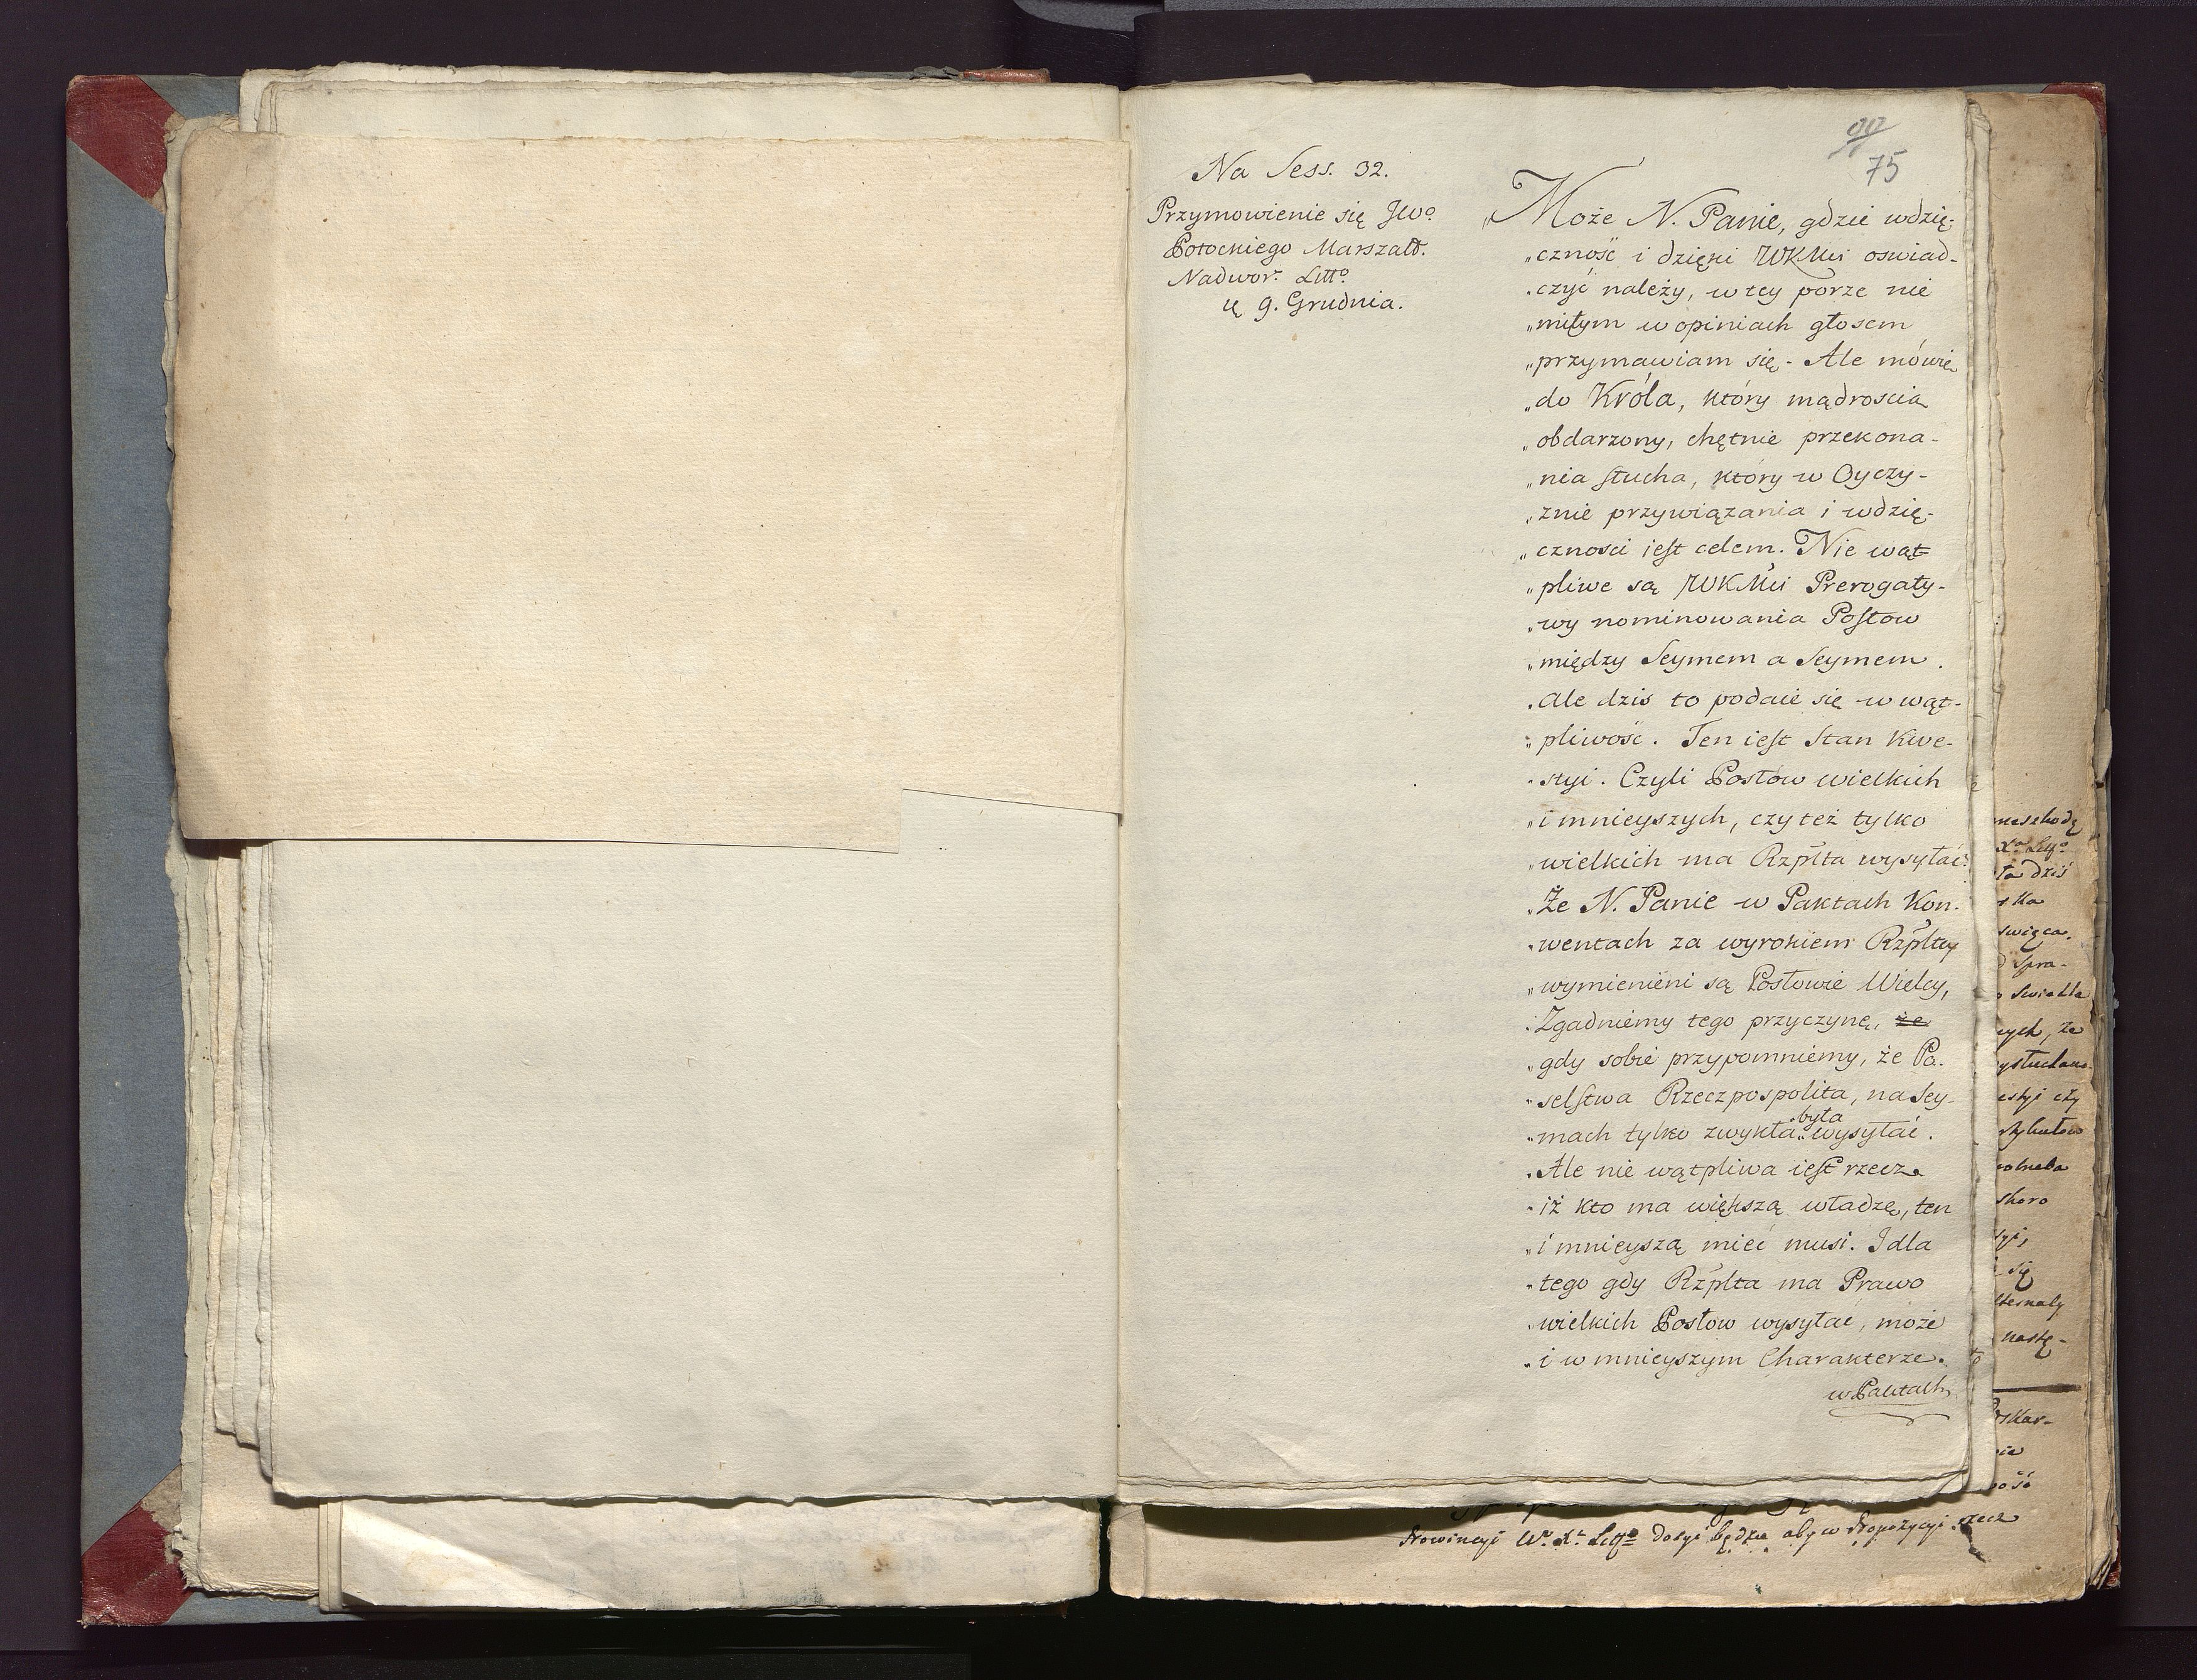 99
75
Na Sess. 32.
Przymowienie się JWo
Potockiego Marszałł.
Nadwor. Litto
d. 9. Grudnia.
„Może N. Panie, gdzie wdzię-
„czność i dzięki WKMci oswiad-
„czyć należy, w tey porze nie
„miłym w opiniach głosem
„przymawiam się - Ale mówię
„do Króla, który mądroscią
„obdarzony, chętnie przekona-
„nia słucha, który w Oyczy-
„znie przywiązania i wdzię-
„cznosci iest celem. Nie wąt-
„pliwe są WKMci Prerogaty-
„wy nominowania Posłow
„między Seymem a Seymem.
„Ale dzis to podaie się w wąt-
„pliwość. Ten iest Stan Kwe-
„styi. Czyli Posłow wielkich
„i mnieyszych, czy też tylko
„wielkich ma Rzplta wysyłać?
„Że N. Panie w Paktach Kon-
„wentach za wyrokiem Rzpltey
„wymienieni są Posłowie Wielcy,
„Zgadniemy tego przyczynę, że
„gdy sobie przypomniemy, że Po-
„selstwa Rzeczpospolita, na Sey-
„mach tylko zwykła była wysyłać.
„Ale nie wątpliwa iest rzecz
„iż kto ma większą władzę, ten
„i mnieyszą mieć musi. I dla
„tego gdy Rzplta ma Prawo
„wielkich Posłow wysyłać, może
„i w mnieyszym Charakterze.
w Paktach
nieszkodę
ta dziś
ska
swięca.
Spra-
swiatła
ych, że
styi czy
skoro
się
nastę-
Prowincyi W. X. Litt. dosyć będzie aby w Propozycyi rzecz